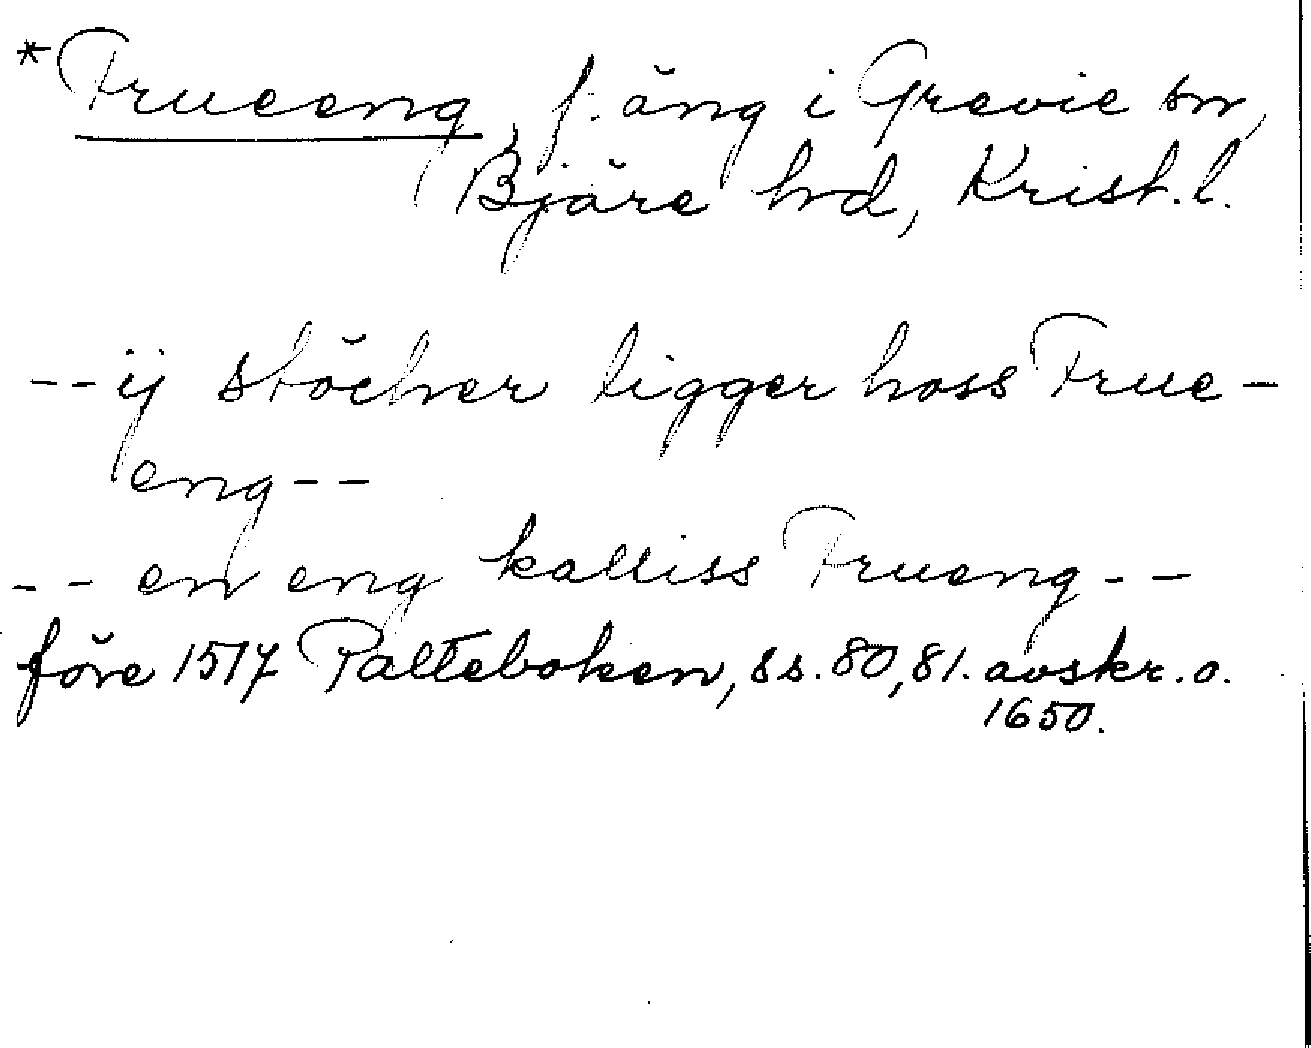 *Frueeng, f. äng i Grevie sn,
Bjäre hrd, Krist. l.
-- ij stöcher ligger hoss Frue-
eng --
-- en eng kalliss Frueng --
före 1517 Palteboken, ss. 80, 81. avskr. o.
1650.